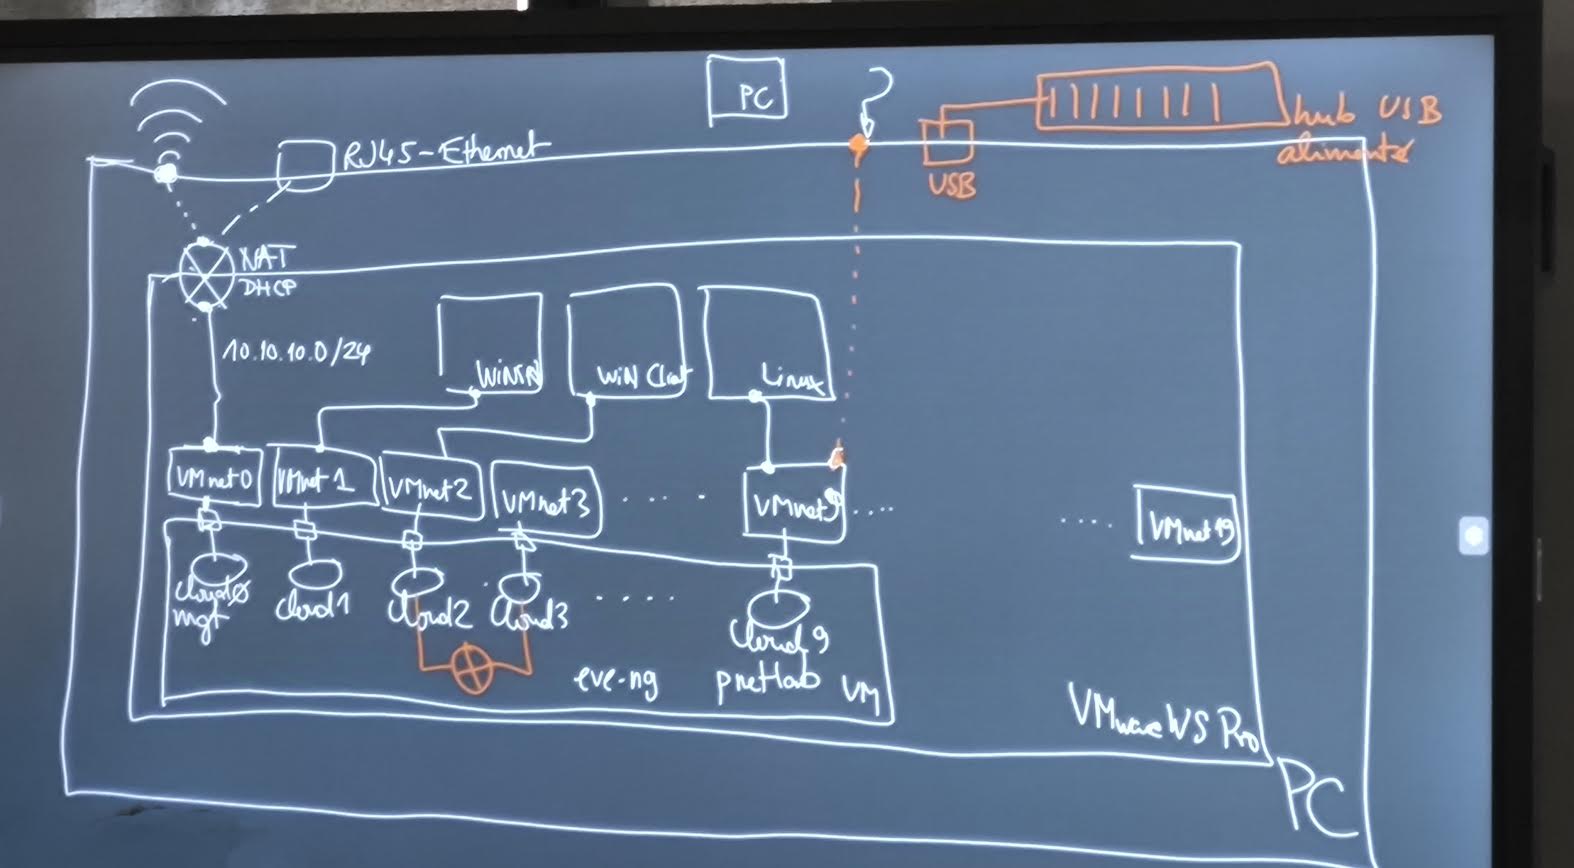 PC
?
hub USB
alimenté
RJ45-Ethernet
USB
NAT
DHCP
10.10.10.0/24
WiN Client
Linux
VMnet0
VMnet1
VMnet2
VMnet3
....
VMnet9
....
....
VMnet19
Cloud0
mgt
Cloud1
Cloud2
Cloud3
....
Cloud9
eve-ng
pnetlab
VM
VMware WS Pro
PC